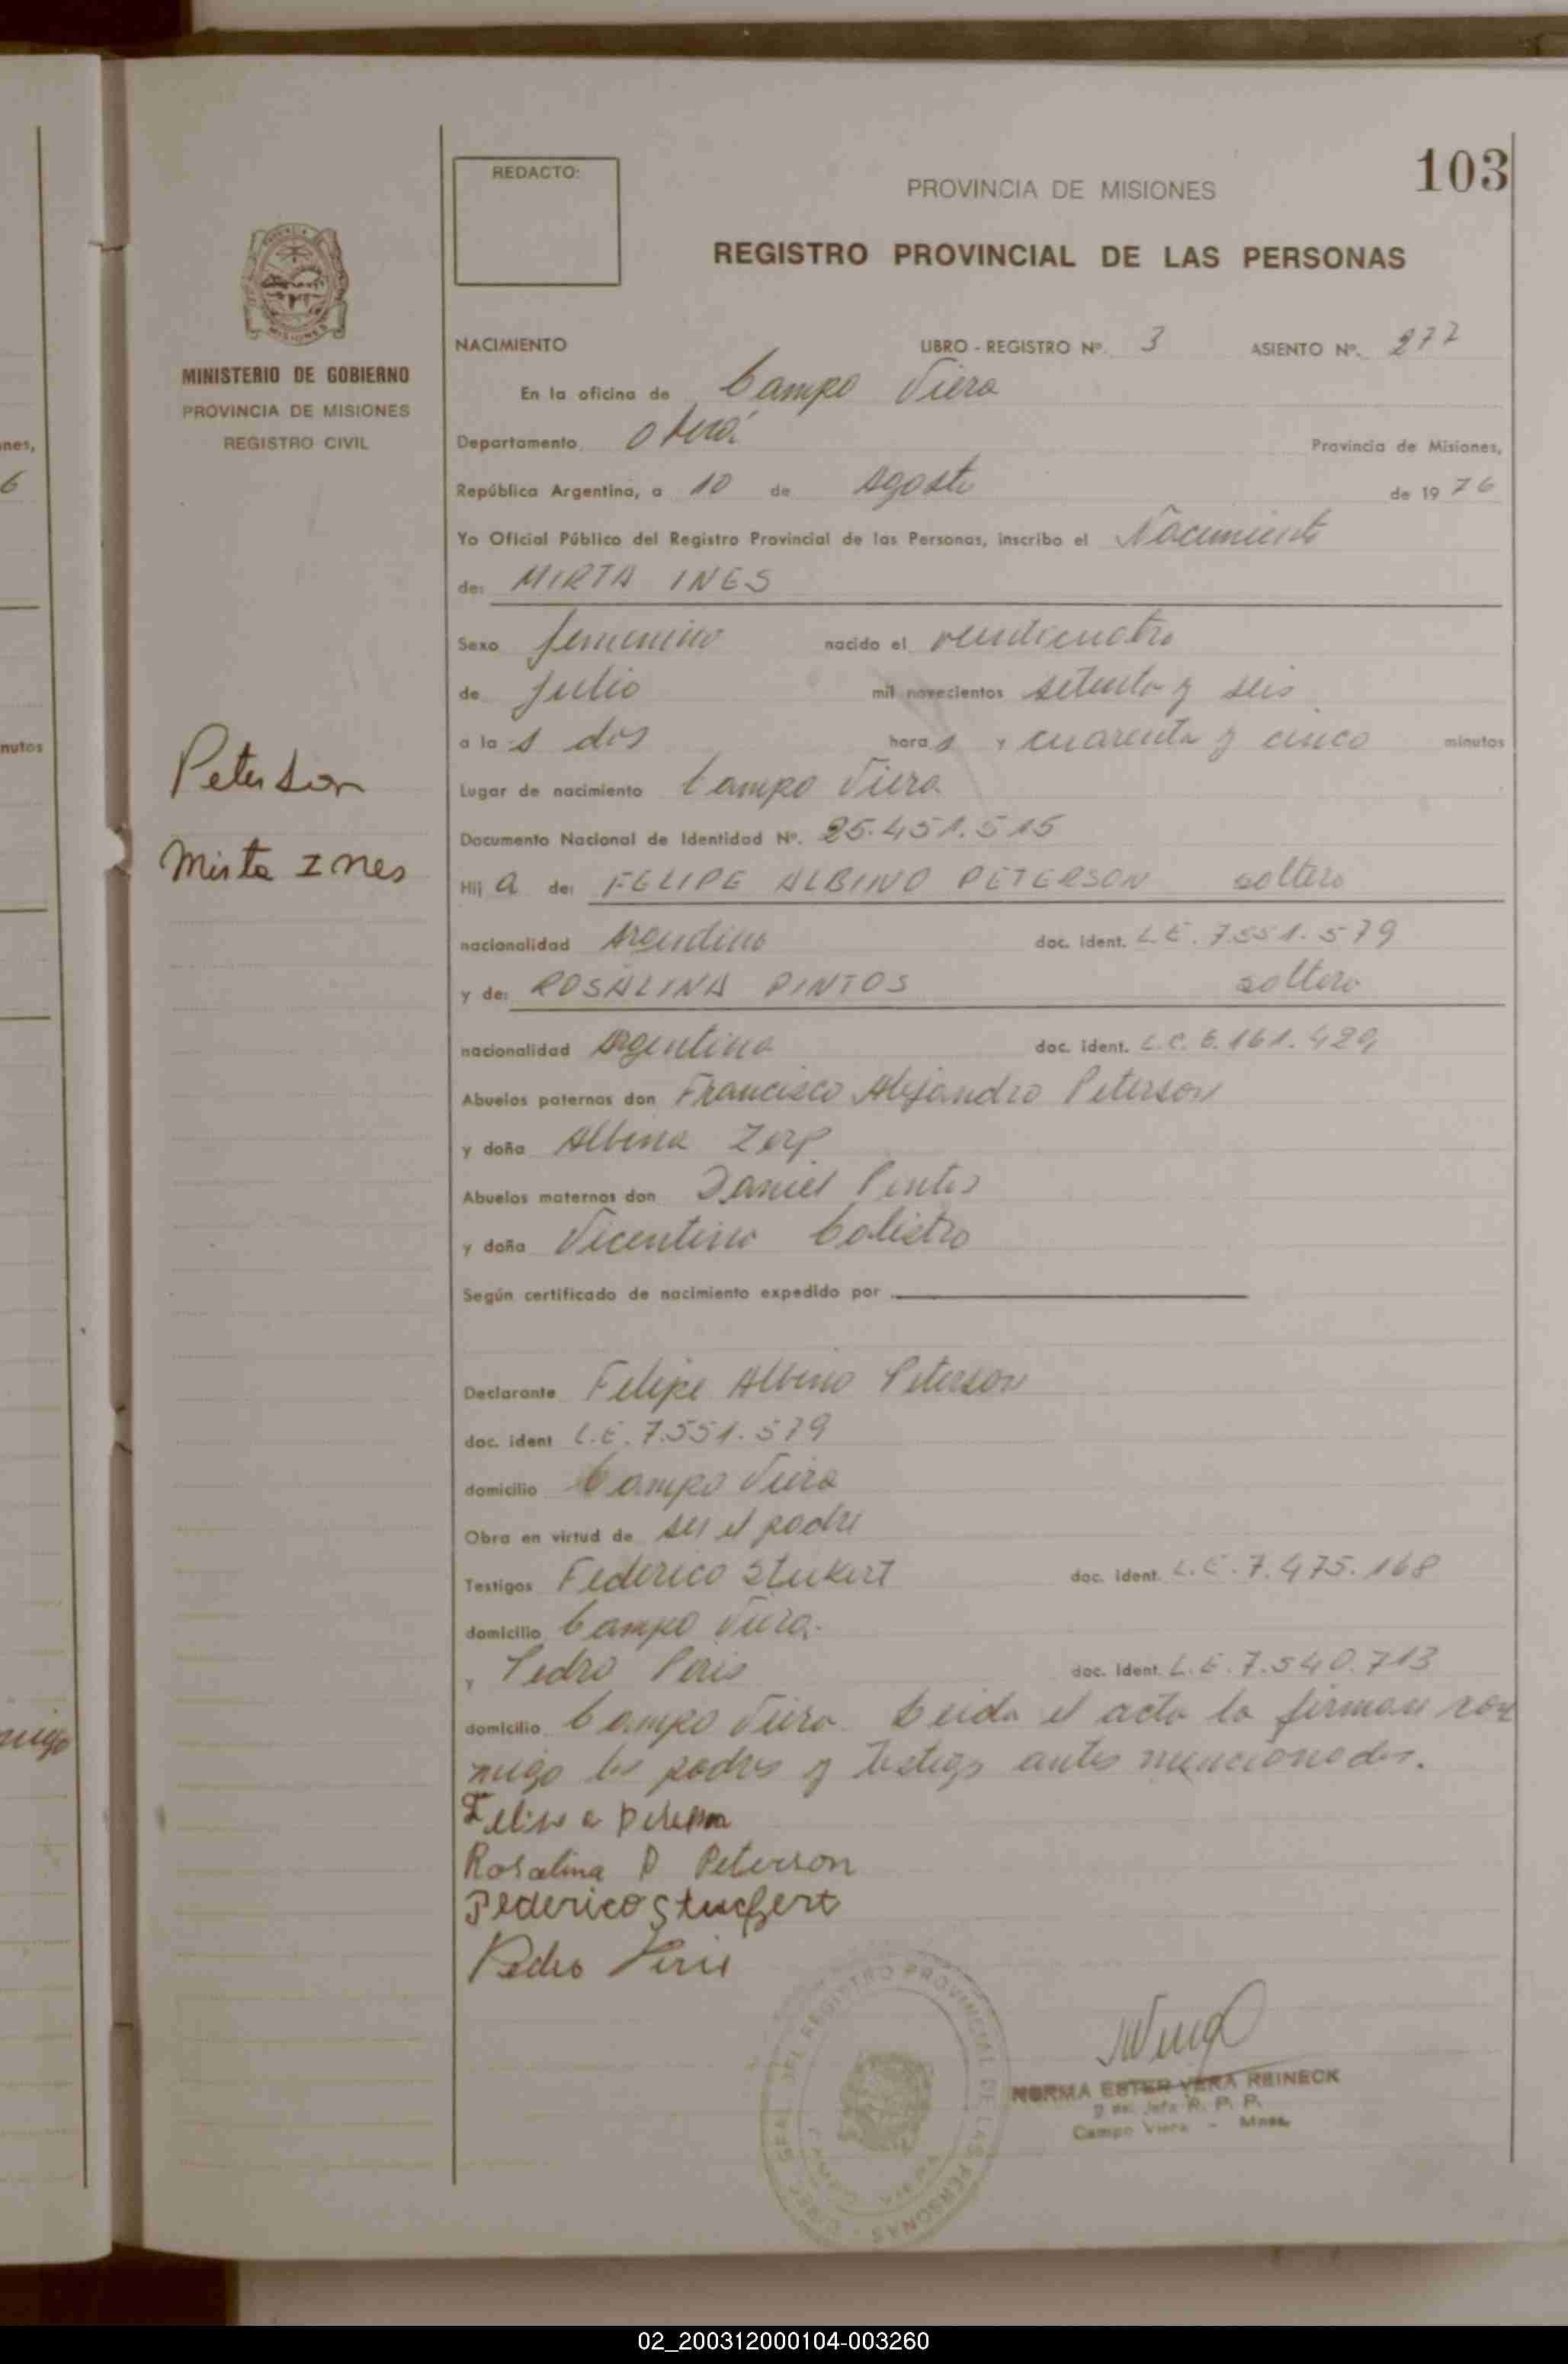 nes,
6
nutos
migo
103
REDACTO:
PROVINCIA DE MISIONES
REGISTRO PROVINCIAL DE LAS PERSONAS
MISIONES
MINISTERIO DE GOBIERNO
PROVINCIA DE MISIONES
REGISTRO CIVIL
Peterson
Mirta Ines
NACIMIENTO LIBRO - REGISTRO Nº. 3 ASIENTO Nº. 277
En la oficina de Campo Viera
Departamento Oberá Provincia de Misiones,
República Argentina, a 10 de Agosto de 1976
Yo Oficial Público del Registro Provincial de las Personas, inscribo el Nacimiento
de: MIRTA INES
Sexo femenino nacido el veinticuatro
de julio mil novecientos setenta y seis
a la s dos hora s y cuarenta y cinco minutos
Lugar de nacimiento Campo Viera
Documento Nacional de Identidad Nº. 25.451.515
Hij a de: FELIPE ALBINO PETERSON soltero
nacionalidad Argentino doc. ident. L.E. 7.551.579
y de: ROSALINA PINTOS soltera
nacionalidad Argentina doc. ident. L.C. 6.161.429
Abuelos paternos don Francisco Alejandro Peterson
y doña Albina Zarp
Abuelos maternos don Daniel Pintos
y doña Vicentina Calistro
Según certificado de nacimiento expedido por
Declarante Felipe Albino Peterson
doc. ident L.E. 7.551.579
domicilio Campo Viera
Obra en virtud de ser el padre
Testigos Federico Stukert doc. ident. L.E. 7.475.168
domicilio Campo Viera.
y Pedro Piris doc. ident. L.E. 7.540.713
domicilio Campo Viera. Leida el acta la firman con
migo los padres y testigos antes mencionados.
Felipe a Peterson
Rosalina P Peterson
Federico Stuckert
Pedro Piris
REGISTRO PROVINCIAL DE LAS PERSONAS
CAMPO VIERA
NORMA ESTER VERA REINECK
Jefe R. P. P.
Campo Viera - Mnes.
02_200312000104-003260